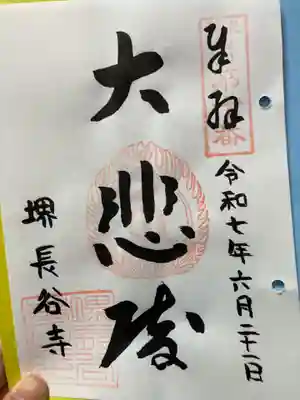 奉拝
令和七年六月二十一日
大悲殿
堺 長谷寺